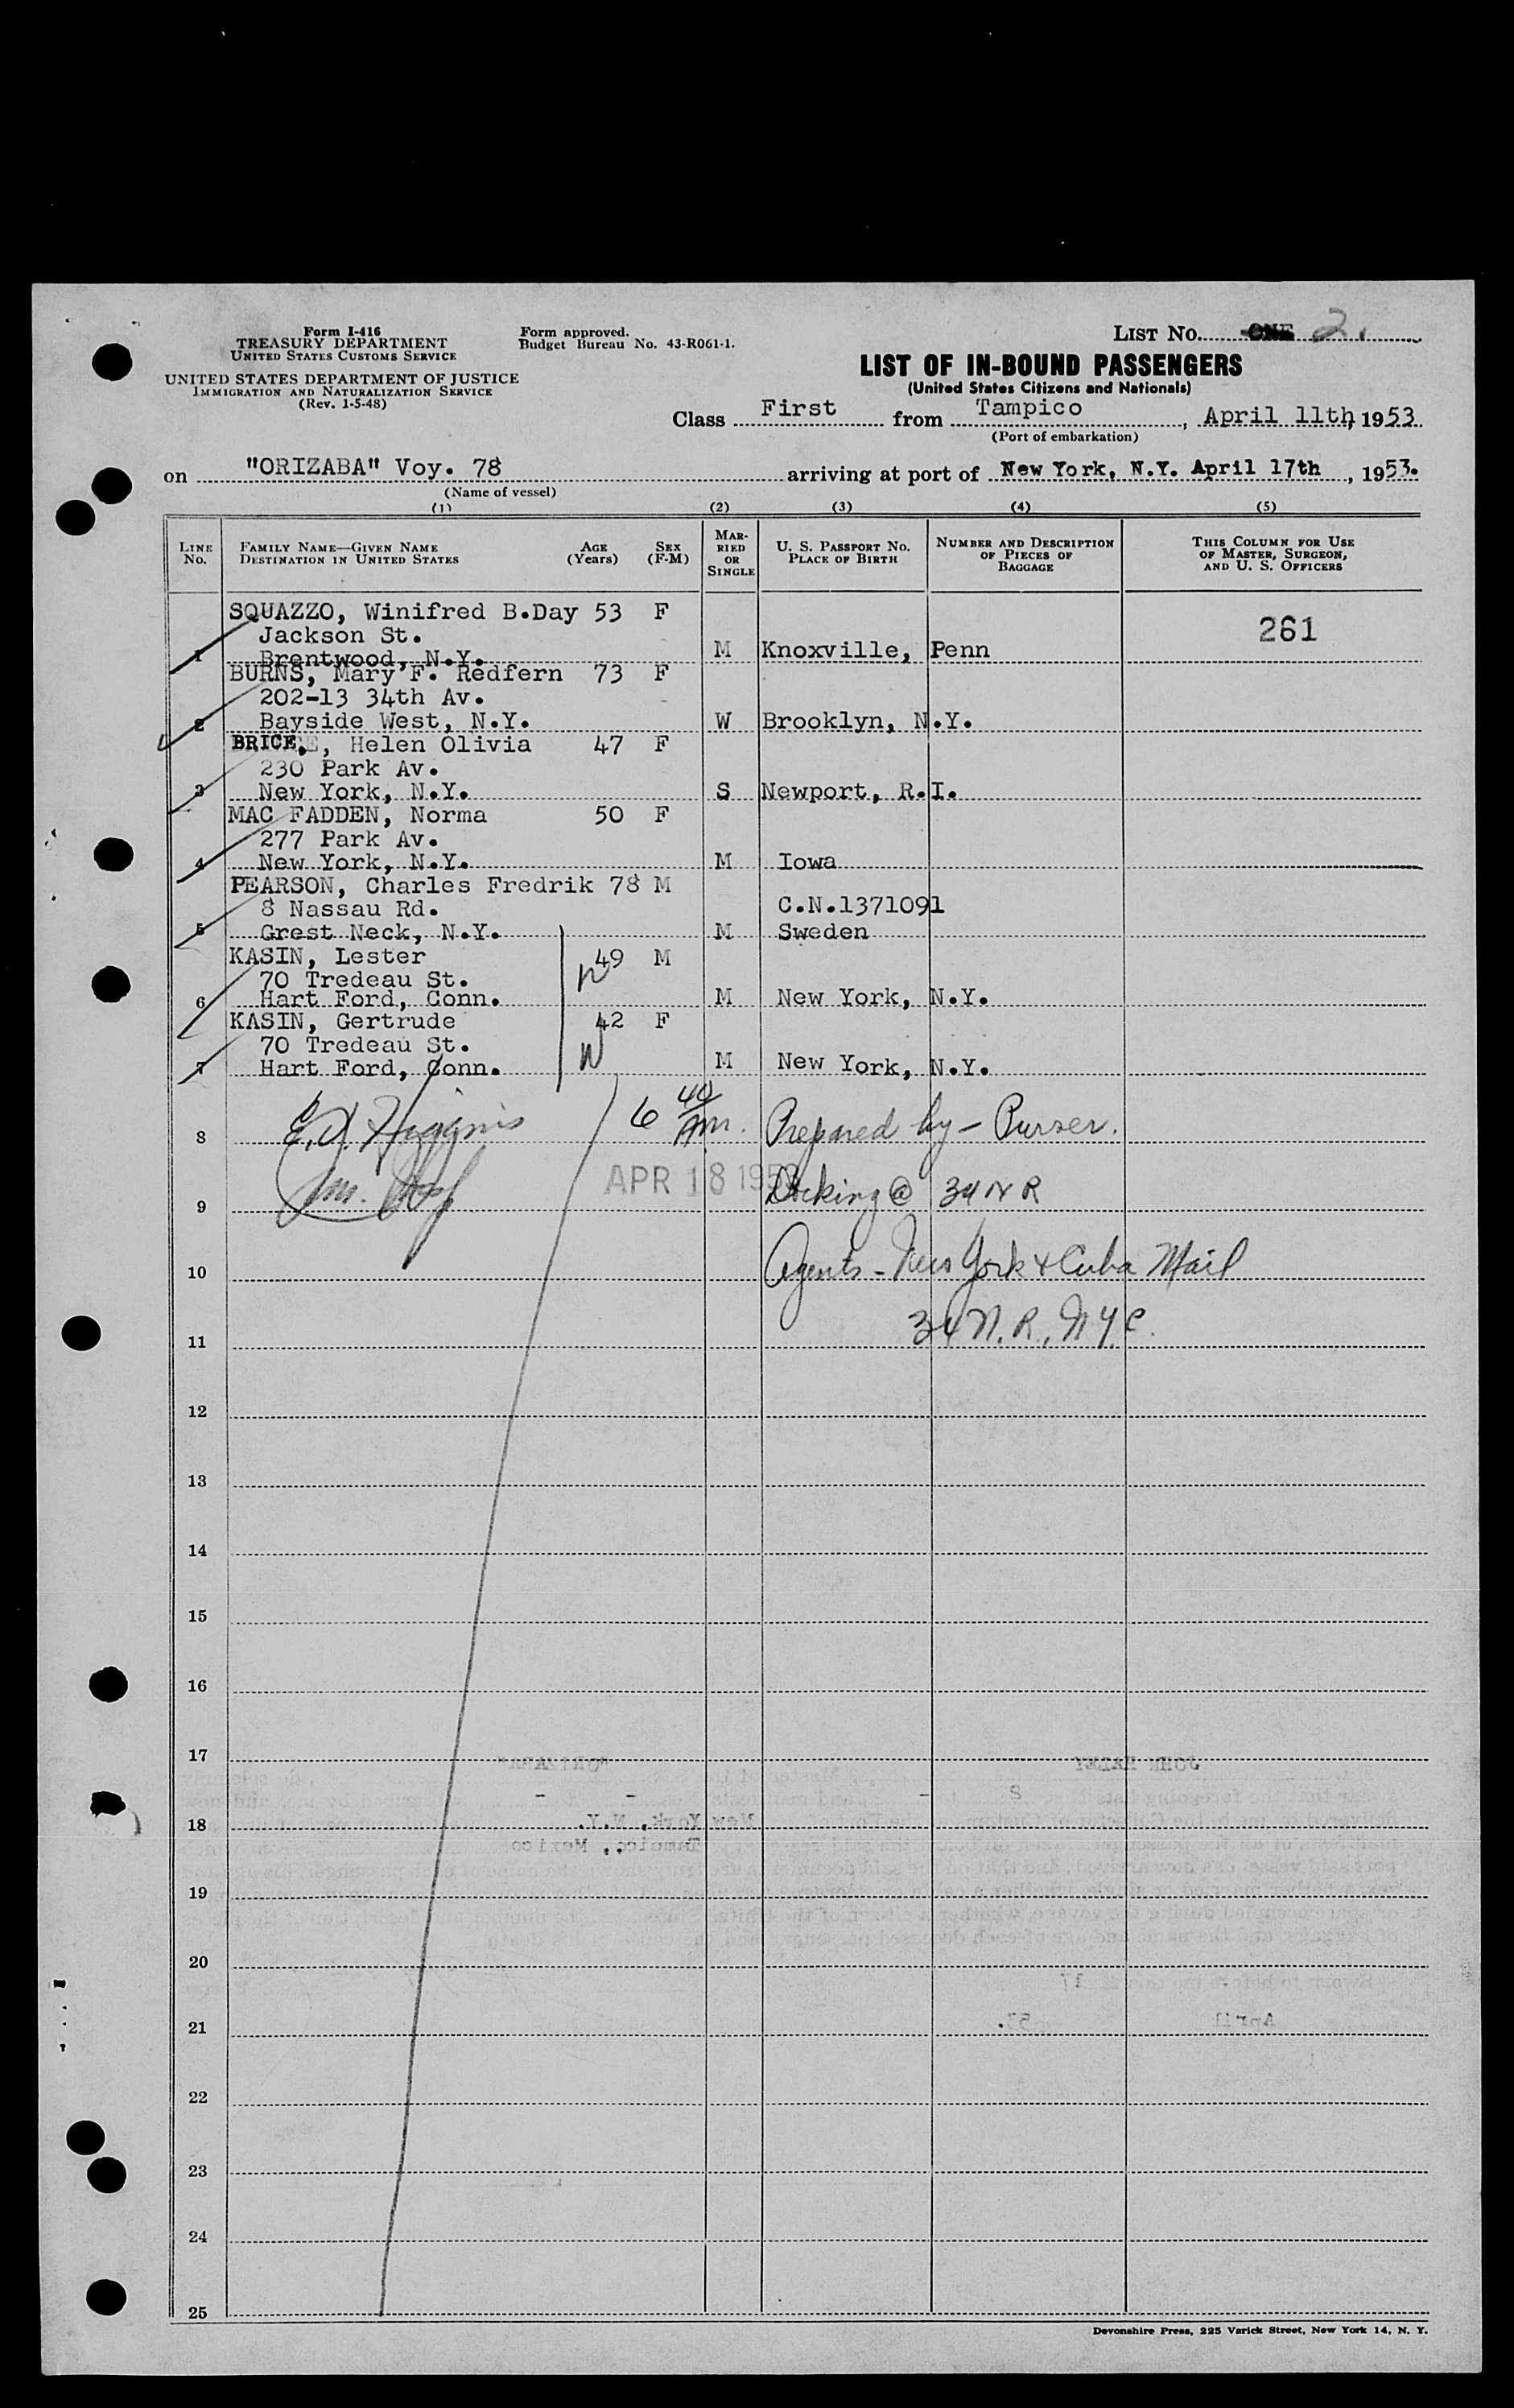 Form I-416
TREASURY DEPARTMENT
UNITED STATES CUSTOMS SERVICE
UNITED STATES DEPARTMENT OF JUSTICE
IMMIGRATION AND NATURALIZATION SERVICE
(Rev. 1-5-48)
Form approved.
Budget Bureau No. 43-R061-1.
LIST NO. ONE 2.
LIST OF IN-BOUND PASSENGERS
(United States Citizens and Nationals)
Class First from Tampico, April 11th, 1953
(Port of embarkation)
on "ORIZABA" Voy. 78 arriving at port of New York, N.Y. April 17th, 1953.
(Name of vessel)
(1) (2) (3) (4) (5)
LINE NO. FAMILY NAME—GIVEN NAME DESTINATION IN UNITED STATES AGE (Years) SEX (F-M) MARRIED OR SINGLE U. S. PASSPORT NO. PLACE OF BIRTH NUMBER AND DESCRIPTION OF PIECES OF BAGGAGE THIS COLUMN FOR USE OF MASTER, SURGEON, AND U. S. OFFICERS
SQUAZZO, Winifred B.Day 53 F
261
Jackson St.
1 Brentwood, N.Y. M Knoxville, Penn
BURNS, Mary F. Redfern 73 F
202-13 34th Av.
2 Bayside West, N.Y. W Brooklyn, N.Y.
BRICE, Helen Olivia 47 F
230 Park Av.
3 New York, N.Y. S Newport, R.I.
MAC FADDEN, Norma 50 F
277 Park Av.
4 New York, N.Y. M Iowa
PEARSON, Charles Fredrik 78 M
8 Nassau Rd. C.N.1371091
5 Grest Neck, N.Y. M Sweden
KASIN, Lester 49 M
70 Tredeau St.
6 Hart Ford, Conn. M New York, N.Y.
KASIN, Gertrude 42 F
70 Tredeau St.
7 Hart Ford, Conn. M New York, N.Y.
8 Higgins 6 40 AM. Prepared by - Purser.
9 APR 18 195 Docking @ 34 N R
10 Agents - New York & Cuba Mail
11 34 N. R., N.Y.C.
12
13
14
15
16
17
18
19
20
21
22
23
24
25
Devonshire Press, 225 Varick Street, New York 14, N. Y.